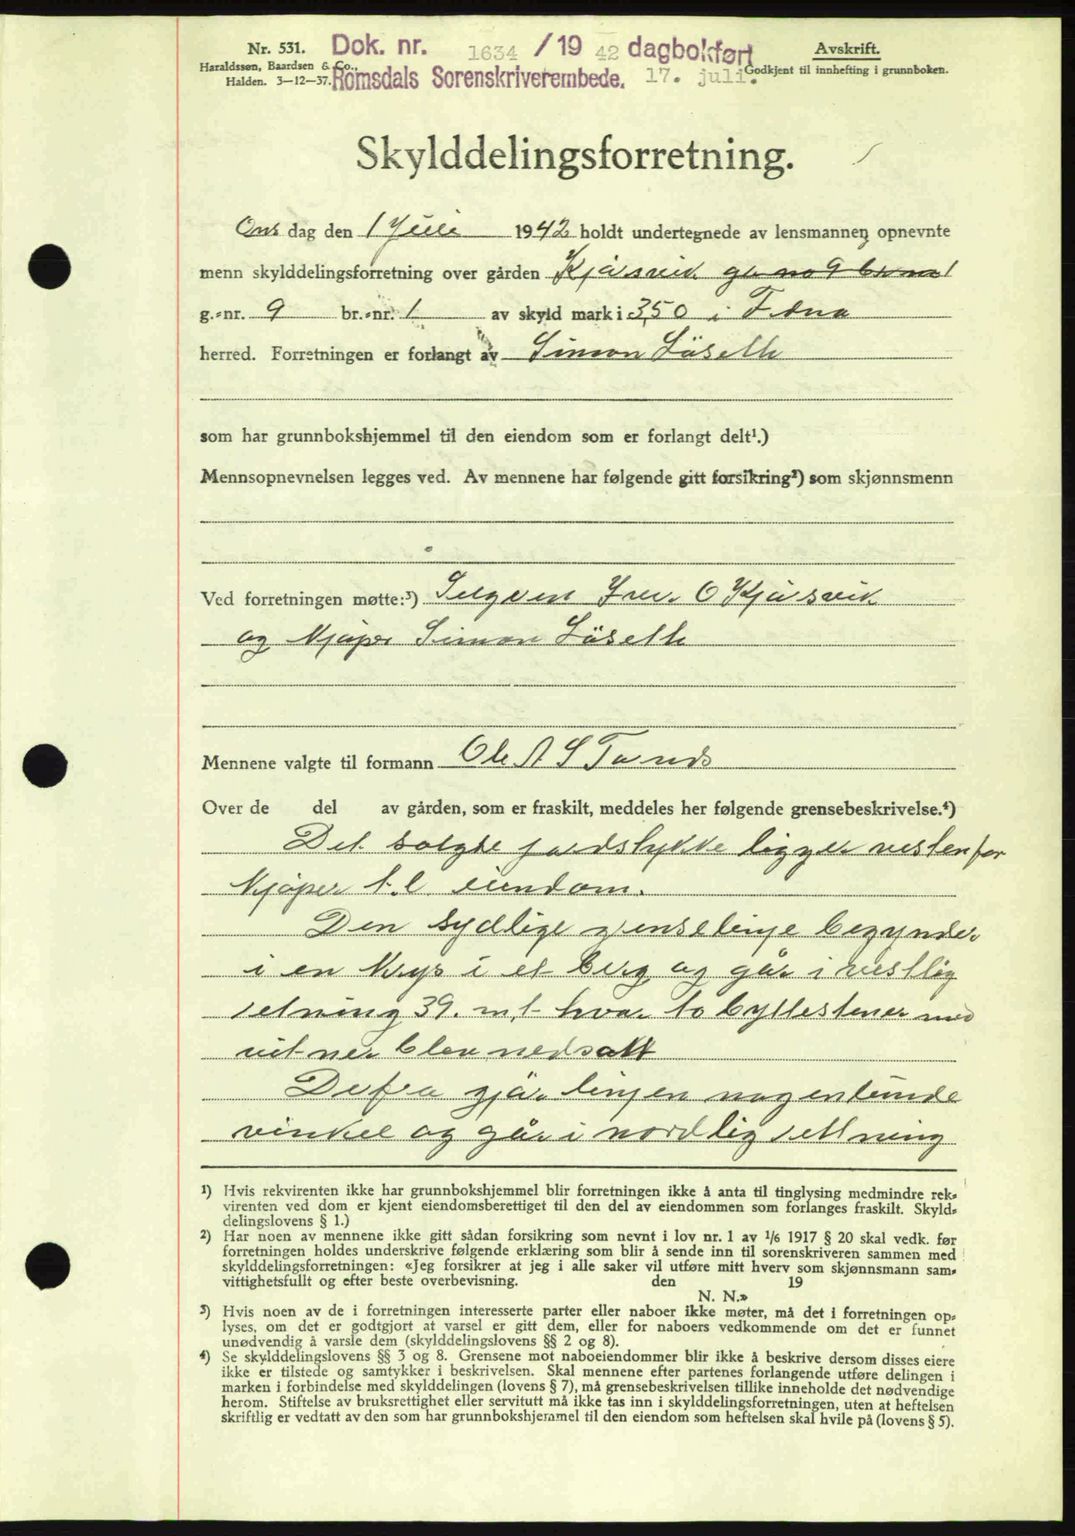 Nr. 531.
Haraldssøn, Baardsen & Co.,
Halden. 3—12—37.
Dok. nr. 1634 / 19 42 dagbokført
Romsdals Sorenskriverembede. 17. juli.
Avskrift.
Godkjent til innhefting i grunnboken.
Skylddelingsforretning.
Ons dag den 1 Juli 1942 holdt undertegnede av lensmannen opnevnte
menn skylddelingsforretning over gården Kjåsvik g no 9 br no 1
g.-nr. 9 br.-nr. 1 av skyld mark i 3,50 i
herred. Forretningen er forlangt av Simon Löseth
som har grunnbokshjemmel til den eiendom som er forlangt delt¹.)
Mennsopnevnelsen legges ved. Av mennene har følgende gitt forsikring²) som skjønnsmenn
Ved forretningen møtte:³) Selgeren Iver O Kjåsvik
og Kjøper Simon Löseth
Mennene valgte til formann Ole A S
Over de del av gården, som er fraskilt, meddeles her følgende grensebeskrivelse.⁴)
Det solgte jordstykke ligger vesten for
Kjøper t.l. eiendom.
Den sydlige grenselinje begynder
i en Krys i et berg og går i vestlig
retning 39. m,t hvor to byttestener med
vitner blev nedsatt
Derfra gjör linjen nogenlunde
vinkel og går i nordlig retning
¹) Hvis rekvirenten ikke har grunnbokshjemmel blir forretningen ikke å anta til tinglysing medmindre rek-
virenten ved dom er kjent eiendomsberettiget til den del av eiendommen som forlanges fraskilt. Skyld-
delingslovens § 1.)
²) Har noen av mennene ikke gitt sådan forsikring som nevnt i lov nr. 1 av 1/6 1917 § 20 skal vedk. før
forretningen holdes underskrive følgende erklæring som blir å sende inn til sorenskriveren sammen med
skylddelingsforretningen: «Jeg forsikrer at jeg i alle saker vil utføre mitt hverv som skjønnsmann sam-
vittighetsfullt og efter beste overbevisning. den 19
N. N.»
³) Hvis noen av de i forretningen interesserte parter eller naboer ikke møter, må det i forretningen op-
lyses, om det er godtgjort at varsel er gitt dem, eller for naboers vedkommende om det er funnet
unødvendig å varsle dem (skylddelingslovens §§ 2 og 8).
⁴) Se skylddelingslovens §§ 3 og 8. Grensene mot naboeiendommer blir ikke å beskrive dersom disses eiere
ikke er tilstede og samtykker i beskrivelsen. Skal mennene efter partenes forlangende utføre delingen i
marken i forbindelse med skylddelingen (lovens § 7), må grensebeskrivelsen tillike inneholde det nødvendige
herom. Stiftelse av bruksrettighet eller servitutt må ikke tas inn i skylddelingsforretningen, uten at heftelsen
skriftlig er vedtatt av den som har grunnbokshjemmel til den eiendom som heftelsen skal hvile på (lovens § 5).